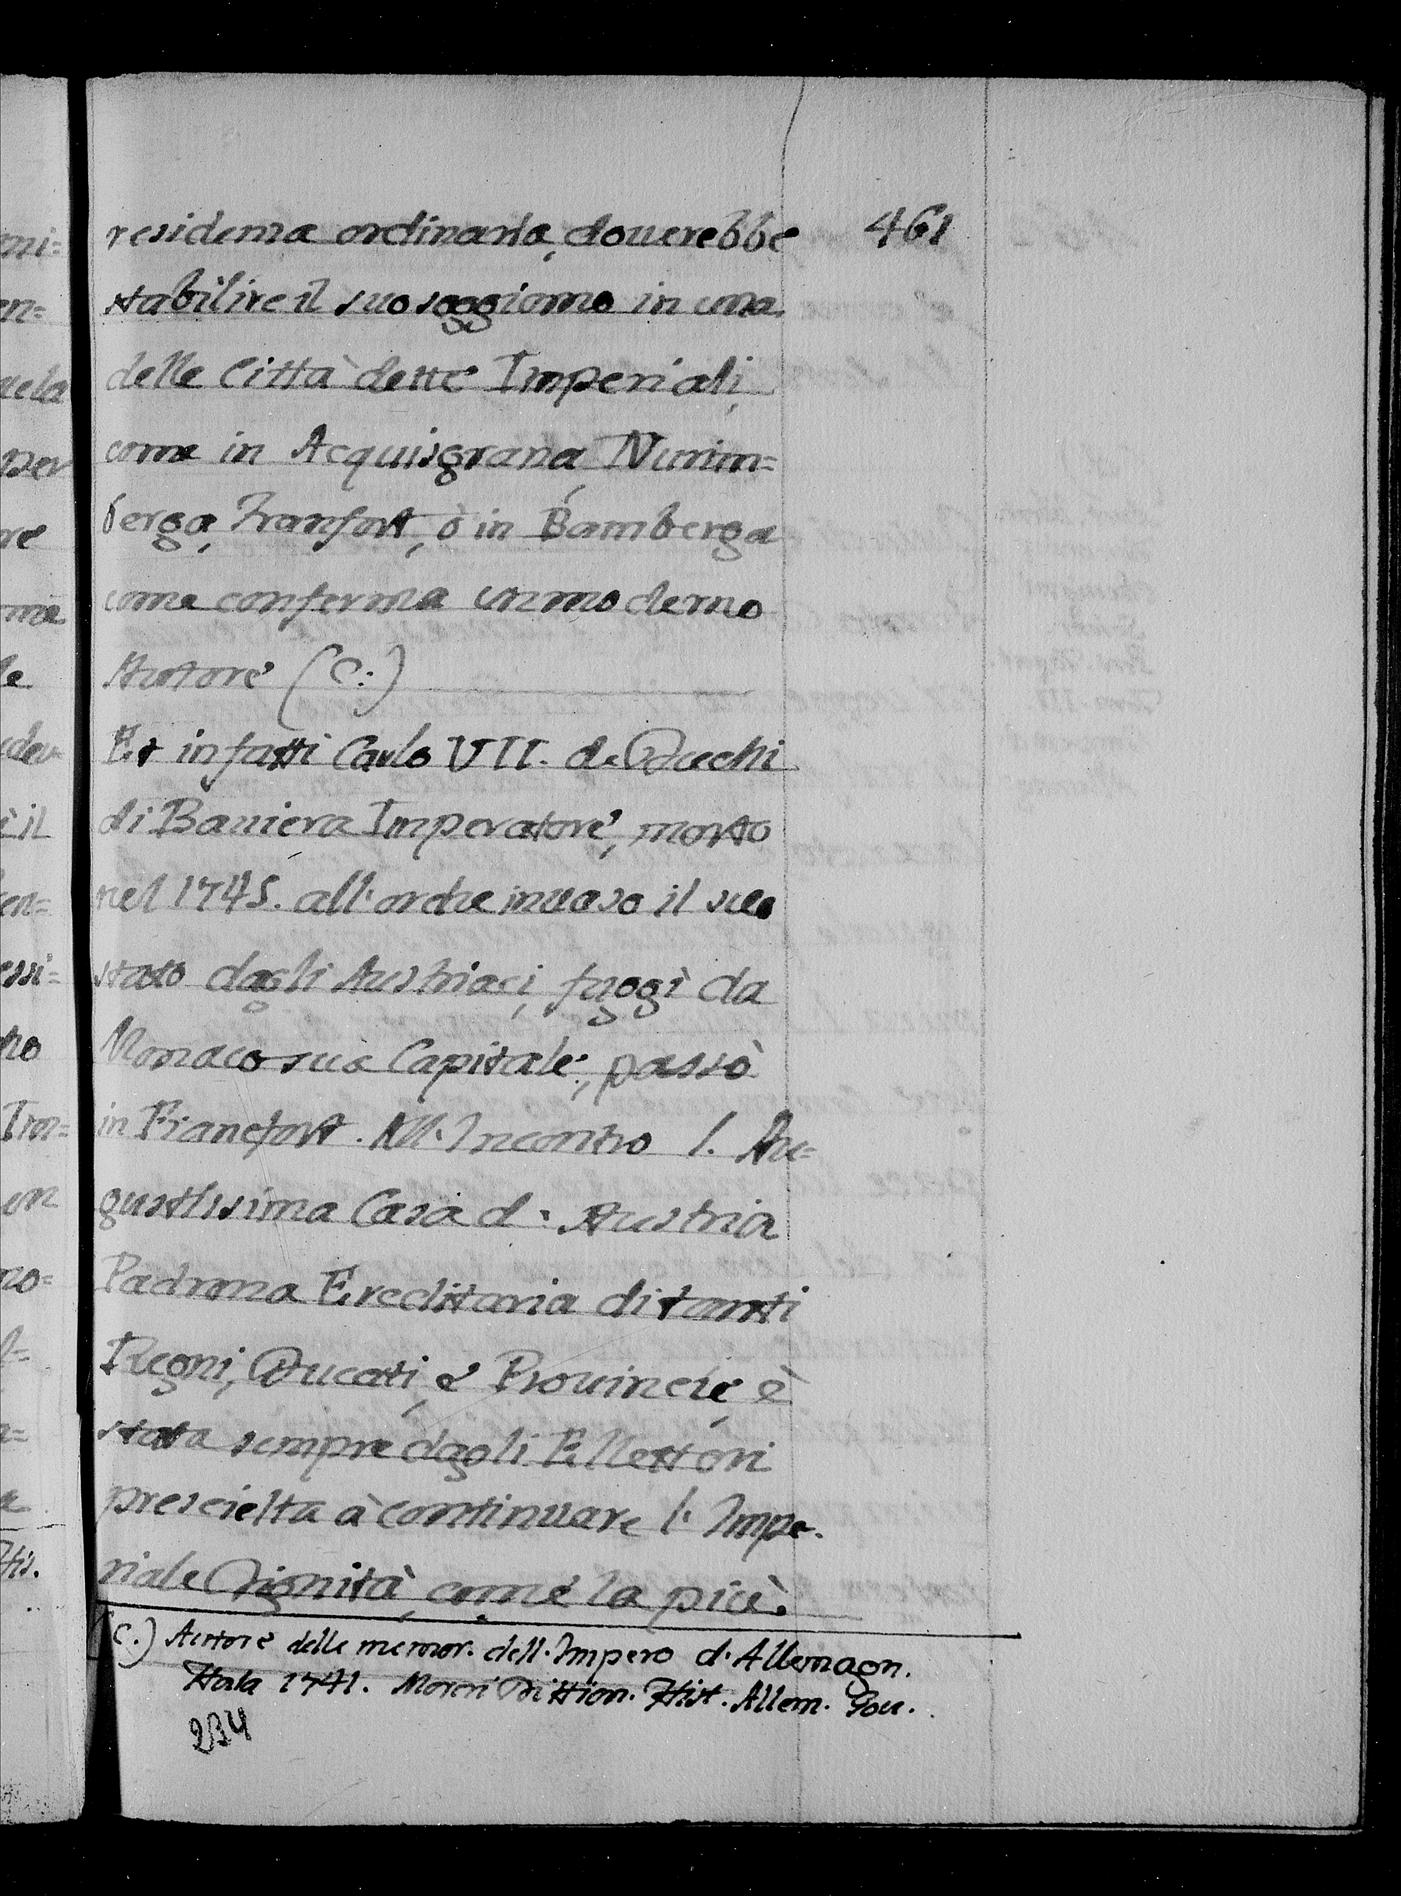 461
residenza ordinaria, douerebbe
stabilire il suo soggiorno in una
delle Città dette Imperiali,
come in Acquisgrana, Nurim=
berga, Franfort, ò in Bamberga
come conferma un moderno
Autore (C:)
Et in fatti Carlo VII. de Duchi
di Bauiera Imperatore, morto
nel 1745. all'orche inuaso il suo
stato dagli Austriaci, fuggì da
Monaco sua Capitale, passò
in Francfort. All'Incontro l'Au=
gustissima Casa d'Austria
Padrona Ereditaria di tanti
Regni, Ducati, e Prouincie, è
stata sempre dagli Ellettori
prescielta à continuare l'Impe.
riale Dignità, come la più.
(C.) Autore delle memor. dell'Impero d'Allemagn.
Hala 1741. Moreri Dittion. Hist. Allem. Gou.
234